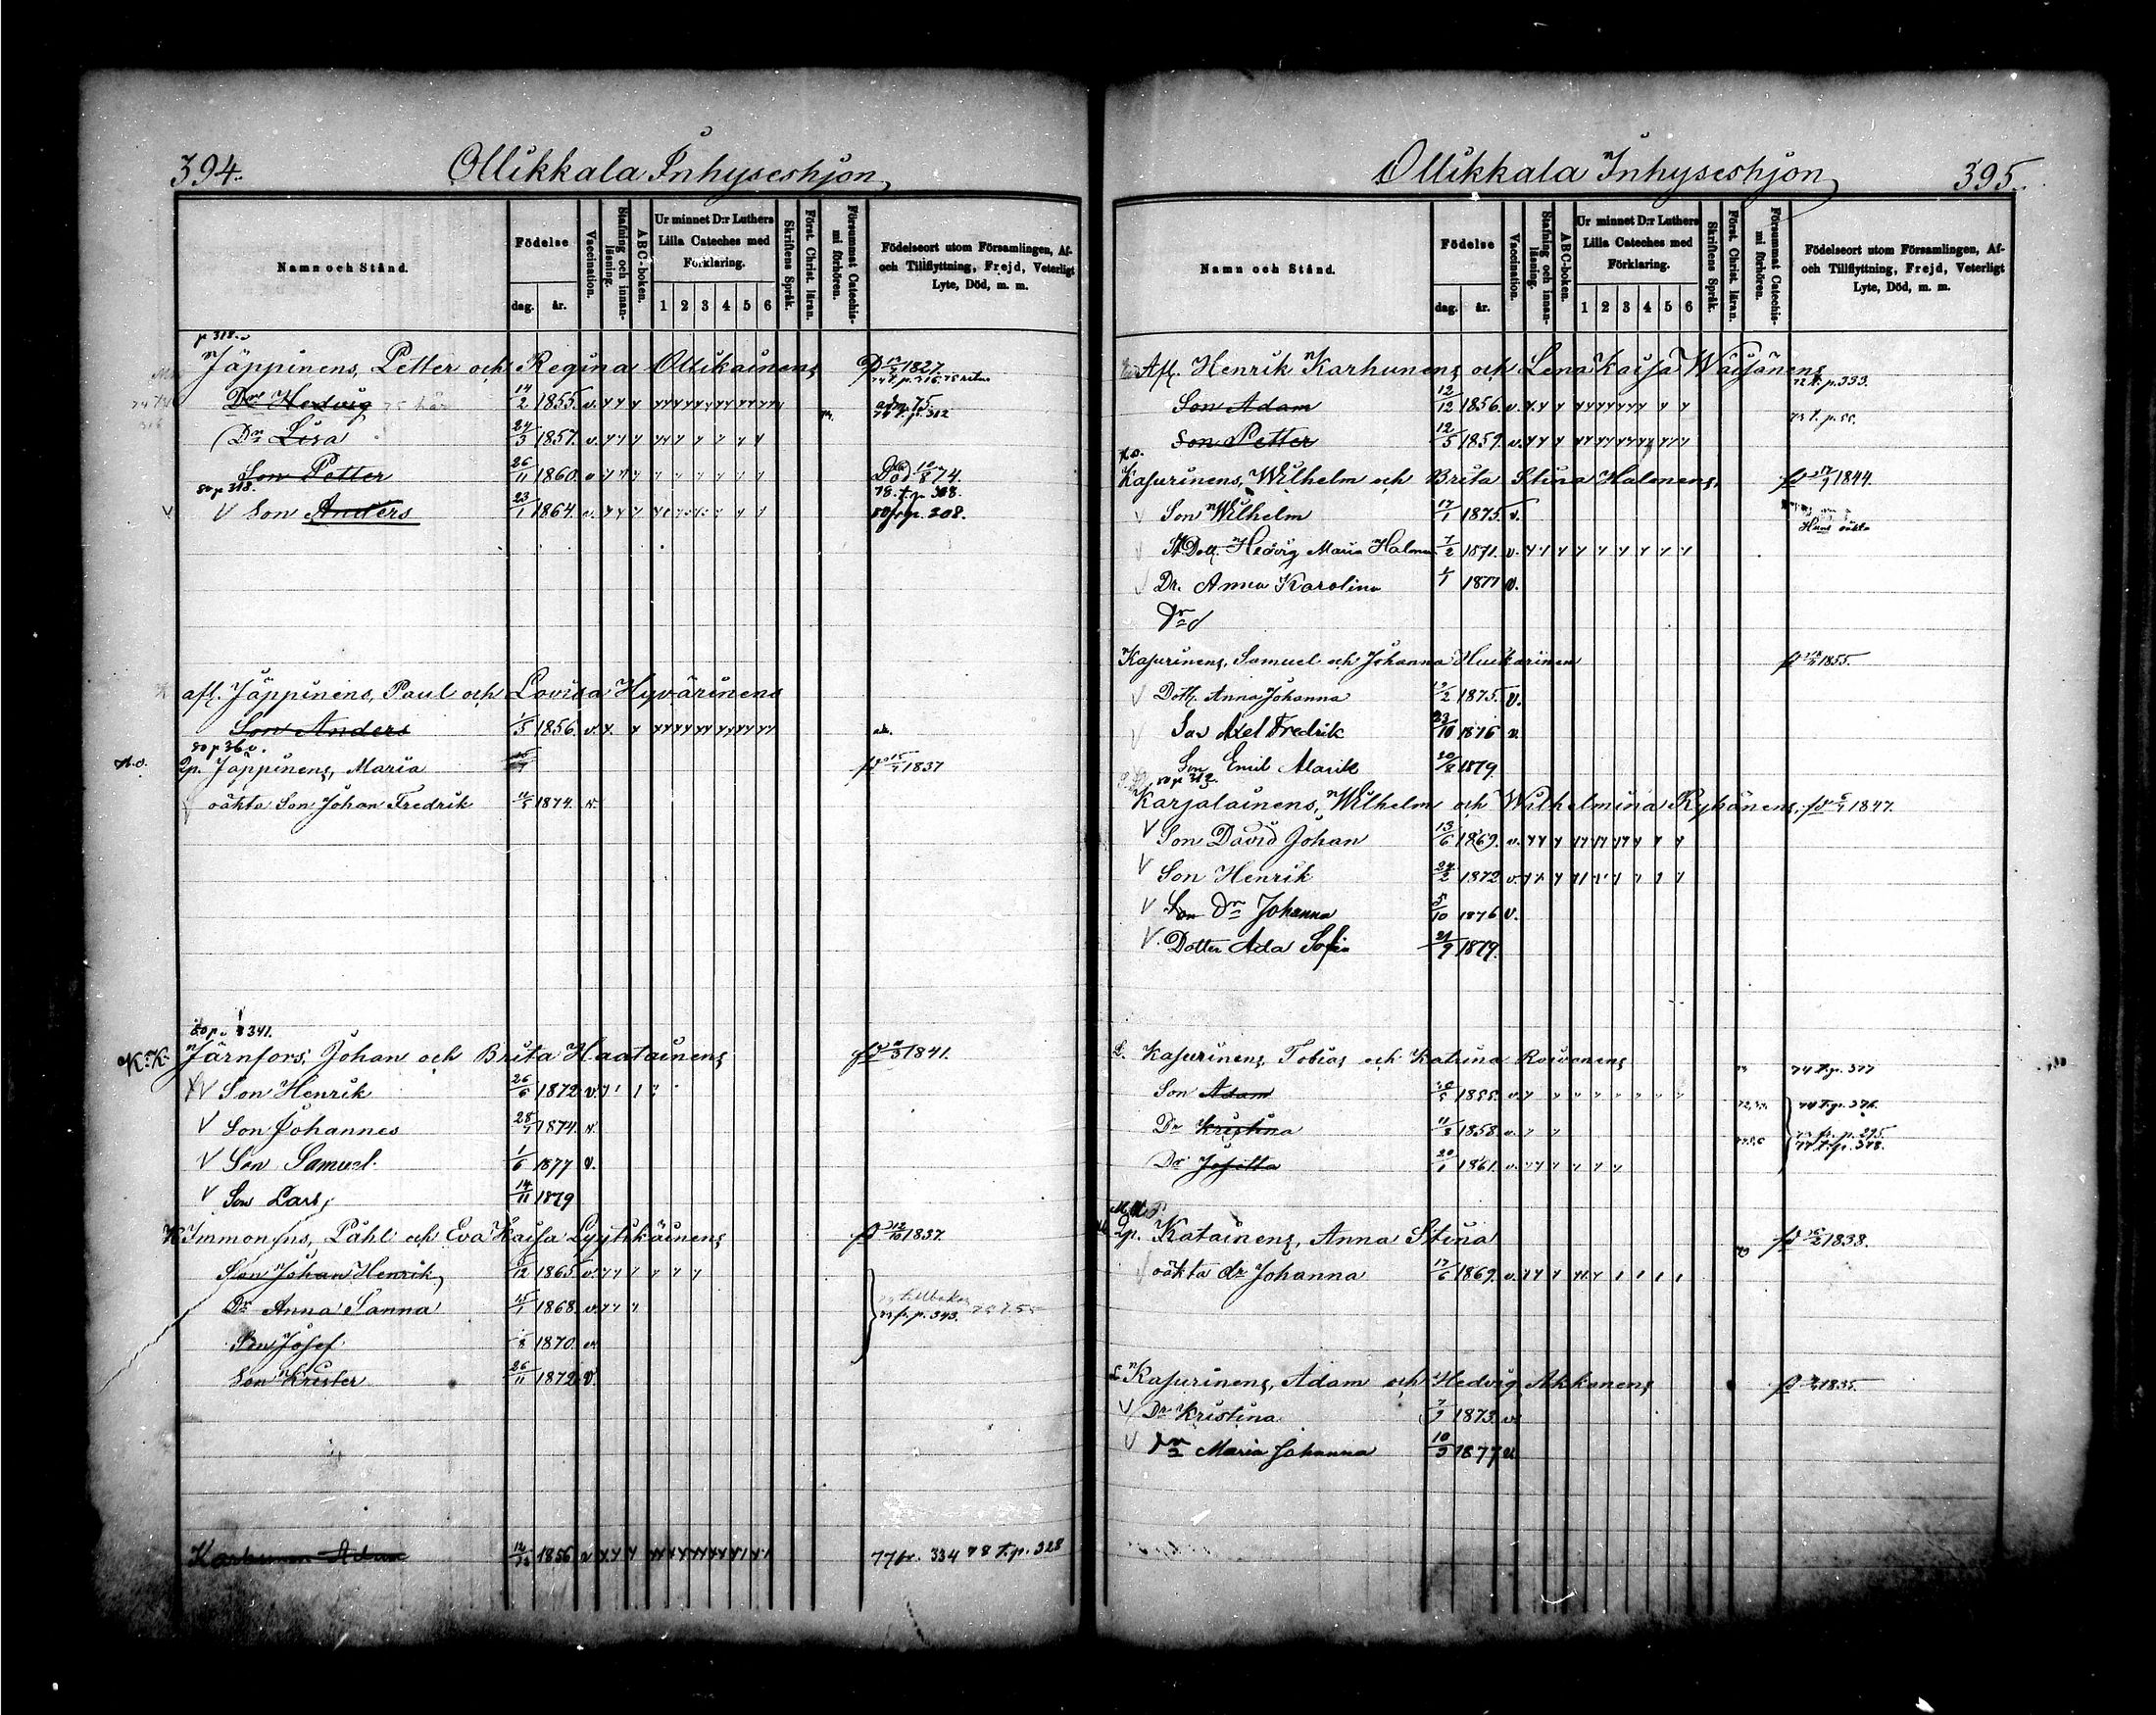 394.
Ollikkala Inhyseshjon
Namn och Stånd.
Födelse
dag.
år.
Vaccination.
Stafning och innanläsning.
ABC-boken.
Ur minnet D:r Luthers Lilla Cateches med Förklaring.
1 2 3 4 5 6
Skriftens Språk.
Först. Christ. läran.
Försummat Catechismi förhören.
Födelseort utom Församlingen, Af- och Tillflyttning, Frejd, Veterligt Lyte, Död, m. m.
p 318.
Jäppinens, Petter och Regina Ollikainens 1827
Dr Hedvig 14/2 1855. v.
Dr Lisa 24/3 1857. v.
Son Petter 26/11 1860. Död 874.
80 p 318. 78. t. p. 308.
Son Anders 23/1 1864. v. 80 fr p. 308.
afl. Jäppinens, Paul och Lovisa Hyvärinens
Son Anders 1/5 1856. v.
80 p 360.
Qp. Jäppinens, Maria 1837
oäkta Son Johan Fredrik 1874.
80 p. 341.
K.K. Järnfors, Johan och Brita Haatainens 1841.
Son Henrik 26/6 1872 v.
Son Johannes 28/1 1874.
Son Samuel. 1/6 1877 v.
Son Lars 14/11 1879
Immonens, Påhl och Eva Kaisa Lyytikäinens 12/10 1837.
Son Johan Henrik 1865 v.
Dr Anna Sanna 1868. v. fr. p. 343.
Son Josef 1870.
Son Krister 26/11 1872 v.
Karhunen Adam 12/12 1856 v 77 fr. 334 78 t. p. 328
Ollikkala Inhyseshjon
395.
Namn och Stånd.
Födelse
dag.
år.
Vaccination.
Stafning och innanläsning.
ABC-boken.
Ur minnet D:r Luthers Lilla Cateches med Förklaring.
1 2 3 4 5 6
Skriftens Språk.
Först. Christ. läran.
Försummat Catechismi förhören.
Födelseort utom Församlingen, Af- och Tillflyttning, Frejd, Veterligt Lyte, Död, m. m.
Afl. Henrik Karhunens och Lena Kaisa Wäisänens
72 t. p. 333.
Son Adam 12/12 1856. v.
Son Petter 12/5 1859. v.
Kasurinens, Wilhelm och Brita Stina Halonens 1844.
Son Wilhelm 17/1 1875. v.
Dott. Hedvig Maria Halonen 7/2 1871. v. Huns oäkta
Dr. Anna Karolina 1877 v.
Dr
Kasurinens, Samuel och Johanna Huikarinen 1855.
Dott. Anna Johanna 1875. v.
Son Axel Fredrik 23/10 1876 v.
Son Emil Alarik 20/8 1879.
80 p 312.
Karjalainens, Wilhelm och Wilhelmina Ryhänens 1847.
Son David Johan 13/6 1869. v.
Son Henrik 24/2 1872 v.
Son Dr Johanna 5/10 1876 v.
Dotter Ada Sofia 21/9 1879.
Kasurinens, Tobias och Katrina Roivonens 74 t. p. 377
Son Adam 1855. v. 74 t. p. 376.
Dr Kristina 11/3 1858 v. fr. p. 295.
Dr Josefta 20/1 1861. v. 77 t. p. 378.
Qp. Katainens, Anna Stina 1838.
oäkta dr Johanna 17/6 1869. v.
Kasurinens, Adam och Hedvig Akkanens 1835.
Dr Kristina 7/9 1873. v.
Dr Maria Johanna 10/9 1877 v